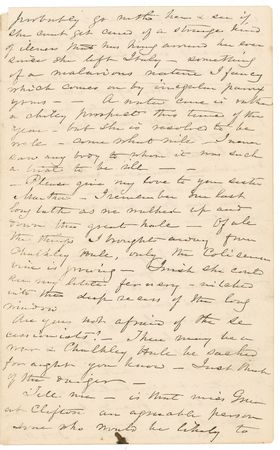 probably go with her & see if
she can't get cured of a strange kind
of illness that has hung around her ever
since she left Italy — something
of a malarious nature I fancy
which comes on by irregular
— A water cure is rather
a chilly prospect this time of the
Year — but she is resolved to be
well — come what will — I never
saw any body to whom it was such
a trial to be ill —
Please give my love to your sister
Martha — I remember our last
long talk as we walked up and
down the great hall — Of all
the things I brought away from
Chulkley Hall, only the Coliseum
vine is growing — I wish she could
see my library for ivy —
with the deep recess of the long
window
Are you not afraid of the se
cessionists? — There may be a
war & Chulkley Hall be sacked
for aught you know — Just think
of the danger —
Tell me — is that Miss
at Clifton an agreeable person
& one who would be likely to